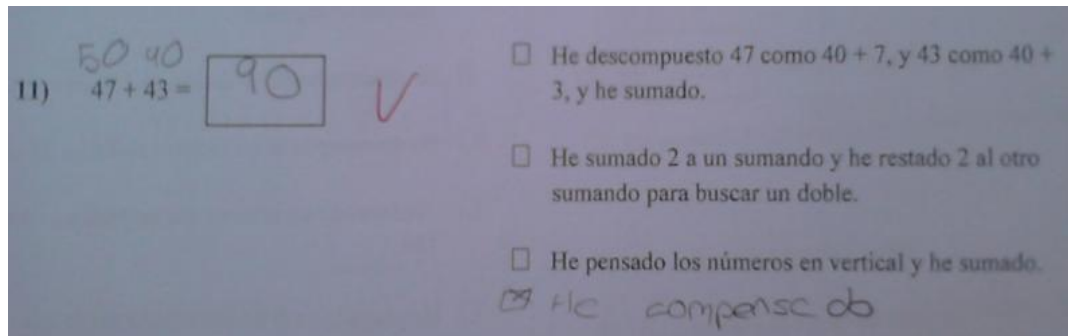 50 40
11) 47 + 43 = 90 V
☐ He descompuesto 47 como 40 + 7, y 43 como 40 +
3, y he sumado.
☐ He sumado 2 a un sumando y he restado 2 al otro
sumando para buscar un doble.
☐ He pensado los números en vertical y he sumado.
☒ He compensado